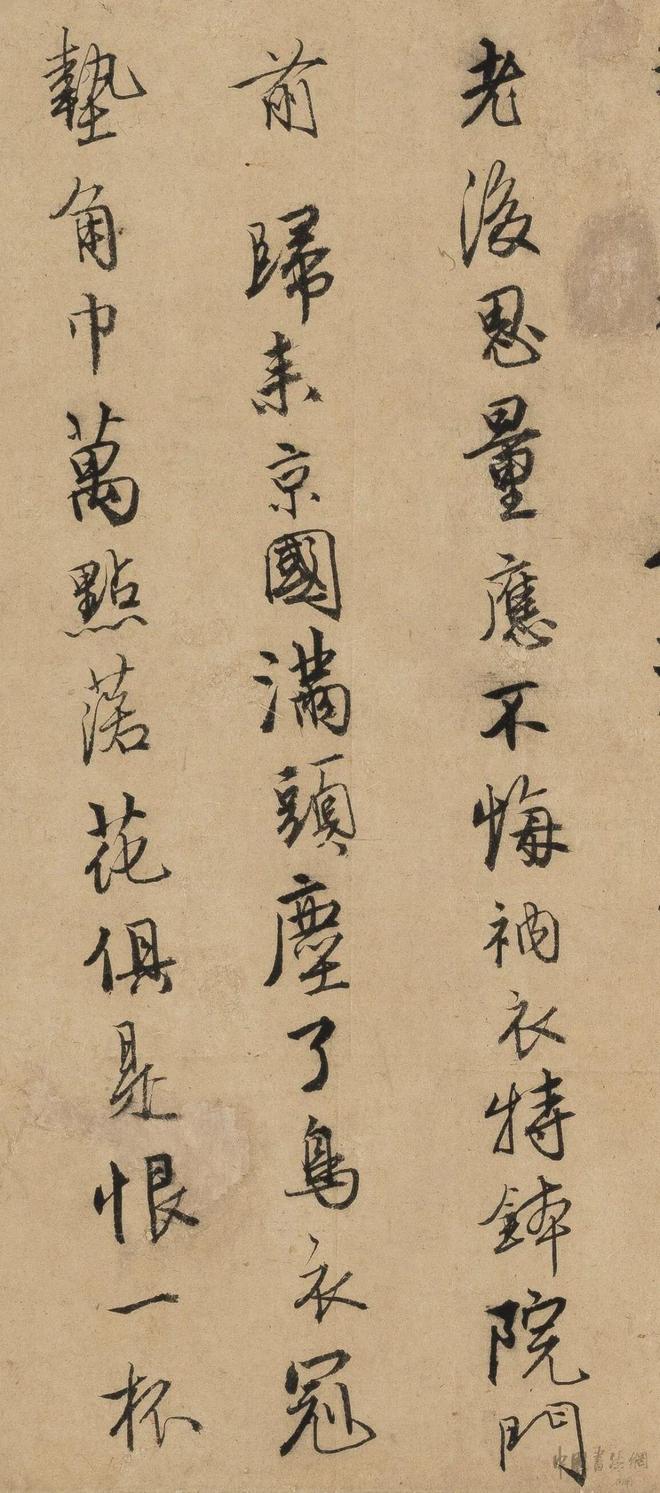 老後思量應不悔衲衣持鉢院門
前歸來京國滿頭塵了烏衣冠
墊角巾萬點落花俱是恨一杯
中国書法網